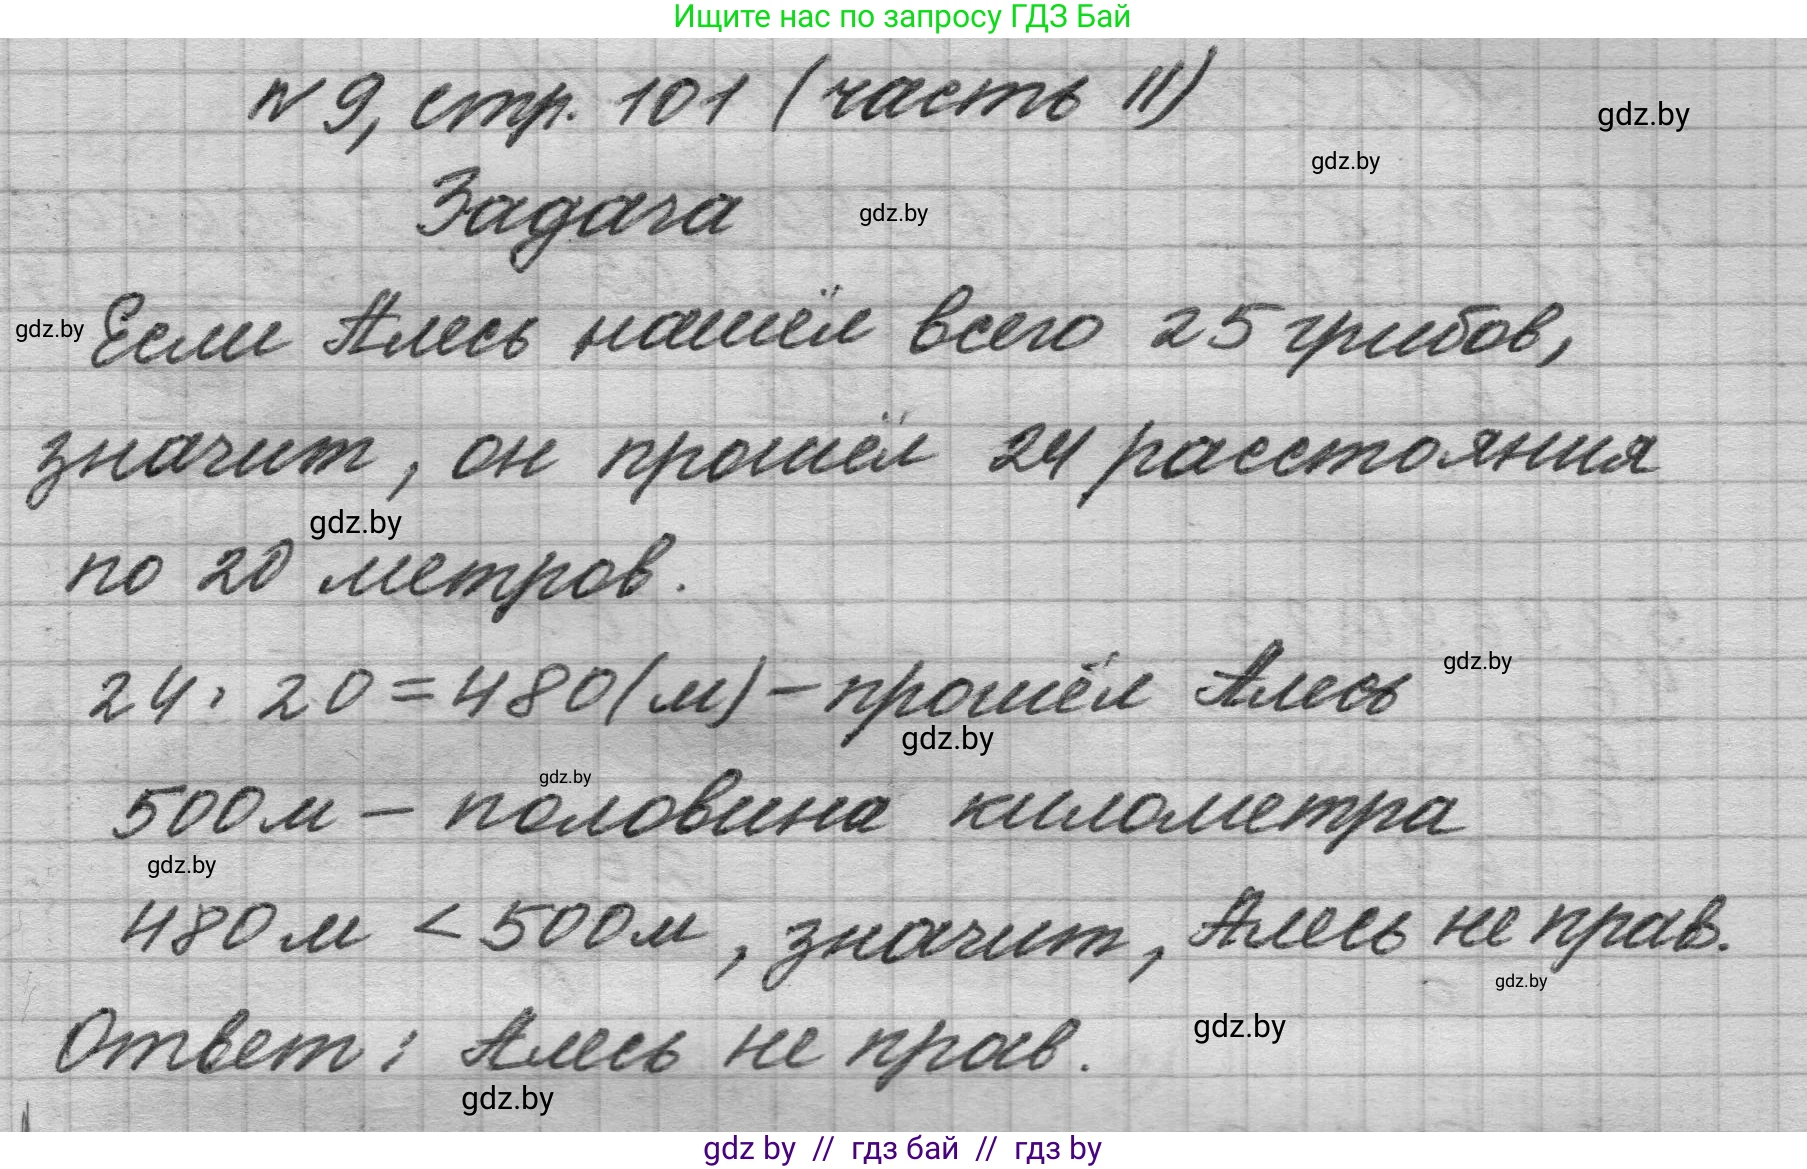 Ищите нас по запросу ГДЗ Бай
N 9, стр. 101 (часть II)
gdz.by
gdz.by
Задача
gdz.by
gdz.by
Если Алесь нашёл всего 25 грибов,
значит, он прошёл 24 расстояния
gdz.by
по 20 метров.
24 · 20 = 480 (м) – прошёл Алесь
gdz.by
gdz.by
gdz.by
500 м – половина километра
gdz.by
480 м < 500 м, значит, Алесь не прав.
gdz.by
gdz.by
Ответ: Алесь не прав.
gdz.by
gdz by // гдз бай // гдз by